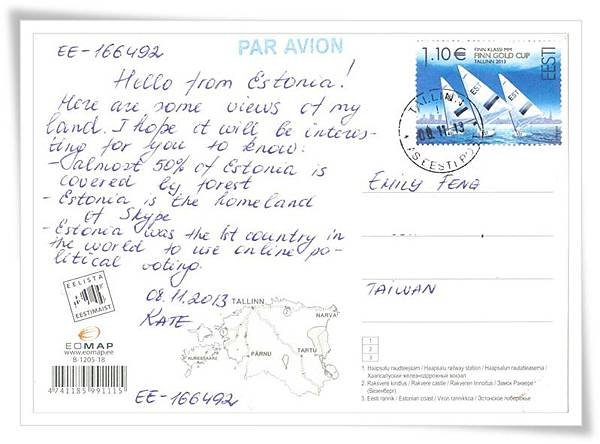 EE-166492
PAR AVION
Hello from Estonia!
Here are some views of my
land. I hope it will be interes-
ting for you to know:
- almost 50% of Estonia is
covered by forest
- Estonia is the homeland
of Skype
- Estonia was the 1st country in
the world to use online po-
litical voting.
08.11.2013
KATE
EE-166492
1.10 €
FINN KLASSI MM
FINN GOLD CUP
TALLINN 2013
EESTI
EST
TALLINN
08.11.13
AS EESTI POST
EMILY FENG
TAIWAN
EELISTA
EESTIMAIST
EOMAP
www.eomap.ee
B-1205-18
4741185991115
TALLINN
NARVA
KURESSAARE
PÄRNU
TARTU
1
2
3
1. Haapsalu raudteejaam / Haapsalu railway station / Haapsalun rautatieasema /
Хаапсалуский железнодорожный вокзал
2. Rakvere kindlus / Rakvere castle / Rakveren linnoitus / Замок Раквере
(Везенберг)
3. Eesti rannik / Estonian coast / Viron rannikkoa / Эстонское побережье